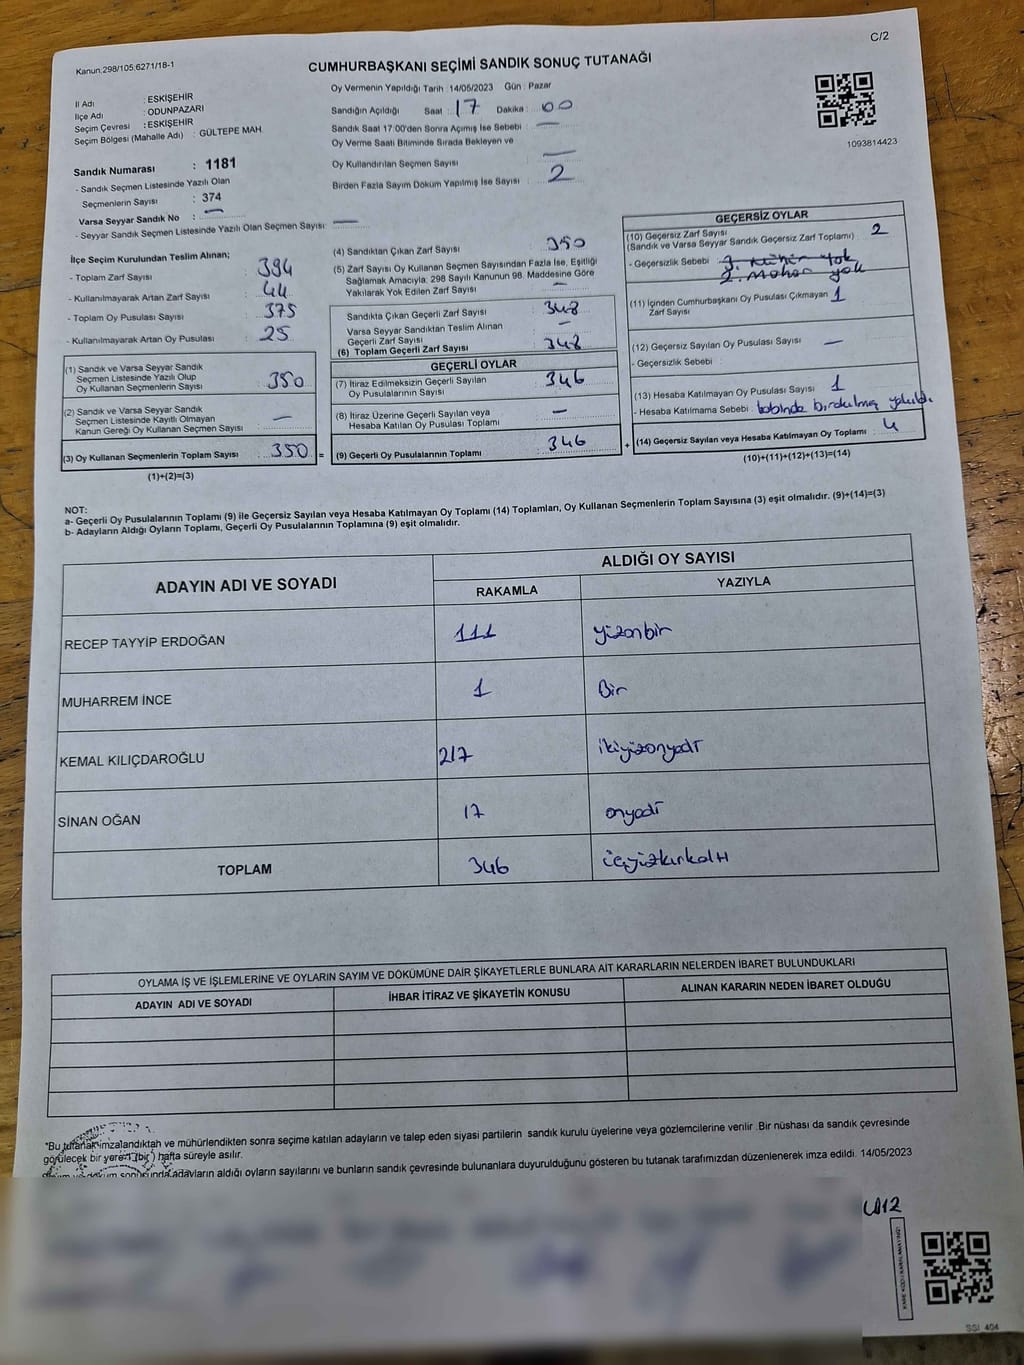 C/2
Kanun:298/105,6271/18-1
CUMHURBAŞKANI SEÇİMİ SANDIK SONUÇ TUTANAĞI
İl Adı : ESKİŞEHİR
İlçe Adı : ODUNPAZARI
Seçim Çevresi : ESKİŞEHİR
Seçim Bölgesi (Mahalle Adı) : GÜLTEPE MAH.
Sandık Numarası : 1181
- Sandık Seçmen Listesinde Yazılı Olan
Seçmenlerin Sayısı : 374
Varsa Seyyar Sandık No : —
- Seyyar Sandık Seçmen Listesinde Yazılı Olan Seçmen Sayısı: —
Oy Vermenin Yapıldığı Tarih :14/05/2023 Gün : Pazar
Sandığın Açıldığı Saat : 17 Dakika : 00
Sandık Saat 17:00'den Sonra Açımış İse Sebebi : —
Oy Verme Saati Bitiminde Sırada Bekleyen ve
Oy Kullandırılan Seçmen Sayısı : —
Birden Fazla Sayım Döküm Yapılmış İse Sayısı : 2
1093814423
İlçe Seçim Kurulundan Teslim Alınan;
- Toplam Zarf Sayısı : 394
- Kullanılmayarak Artan Zarf Sayısı : 44
- Toplam Oy Pusulası Sayısı : 375
- Kullanılmayarak Artan Oy Pusulası : 25
(1) Sandık ve Varsa Seyyar Sandık
Seçmen Listesinde Yazılı Olup
Oy Kullanan Seçmenlerin Sayısı : 350
(2) Sandık ve Varsa Seyyar Sandık
Seçmen Listesinde Kayıtlı Olmayan
Kanun Gereği Oy Kullanan Seçmen Sayısı : —
(3) Oy Kullanan Seçmenlerin Toplam Sayısı : 350 =
(1)+(2)=(3)
(4) Sandıktan Çıkan Zarf Sayısı : 350
(5) Zarf Sayısı Oy Kullanan Seçmen Sayısından Fazla İse, Eşitliği
Sağlamak Amacıyla; 298 Sayılı Kanunun 98. Maddesine Göre
Yakılarak Yok Edilen Zarf Sayısı : —
Sandıkta Çıkan Geçerli Zarf Sayısı : 348
Varsa Seyyar Sandıktan Teslim Alınan
Geçerli Zarf Sayısı : —
(6) Toplam Geçerli Zarf Sayısı : 348
GEÇERLİ OYLAR
(7) İtiraz Edilmeksizin Geçerli Sayılan
Oy Pusulasının Sayısı : 346
(8) İtiraz Üzerine Geçerli Sayılan veya
Hesaba Katılan Oy Pusulası Toplamı : —
(9) Geçerli Oy Pusulalarının Toplamı : 346 +
GEÇERSİZ OYLAR
(10) Geçersiz Zarf Sayısı : 2
(Sandık ve Varsa Seyyar Sandık Geçersiz Zarf Toplamı)
- Geçersizlik Sebebi : 1. mühür yok
2. mühür yok
(11) İçinden Cumhurbaşkanı Oy Pusulası Çıkmayan 1
Zarf Sayısı
(12) Geçersiz Sayılan Oy Pusulası Sayısı : —
- Geçersizlik Sebebi :
(13) Hesaba Katılmayan Oy Pusulası Sayısı : 1
- Hesaba Katılmama Sebebi :
(14) Geçersiz Sayılan veya Hesaba Katılmayan Oy Toplamı : 4
(10)+(11)+(12)+(13)=(14)
NOT:
a- Geçerli Oy Pusulalarının Toplamı (9) ile Geçersiz Sayılan veya Hesaba Katılmayan Oy Toplamı (14) Toplamları, Oy Kullanan Seçmenlerin Toplam Sayısına (3) eşit olmalıdır. (9)+(14)=(3)
b- Adayların Aldığı Oyların Toplamı, Geçerli Oy Pusulalarının Toplamına (9) eşit olmalıdır.
ADAYIN ADI VE SOYADI
ALDIĞI OY SAYISI
RAKAMLA YAZIYLA
RECEP TAYYİP ERDOĞAN 111 yüzonbir
MUHARREM İNCE 1 Bir
KEMAL KILIÇDAROĞLU 217 ikiyüzonyedi
SİNAN OĞAN 17 onyedi
TOPLAM 346 üçyüzkırkaltı
OYLAMA İŞ VE İŞLEMLERİNE VE OYLARIN SAYIM VE DÖKÜMÜNE DAİR ŞİKAYETLERLE BUNLARA AİT KARARLARIN NELERDEN İBARET BULUNDUKLARI
ADAYIN ADI VE SOYADI İHBAR İTİRAZ VE ŞİKAYETİN KONUSU ALINAN KARARIN NEDEN İBARET OLDUĞU
*Bu tutanak imzalandıktan ve mühürlendikten sonra seçime katılan adayların ve talep eden siyasi partilerin sandık kurulu üyelerine veya gözlemcilerine verilir .Bir nüshası da sandık çevresinde
görülecek bir yere 1 (bir ) hafta süreyle asılır.
adayların aldığı oyların sayılarını ve bunların sandık çevresinde bulunanlara duyurulduğunu gösteren bu tutanak tarafımızdan düzenlenerek imza edildi. 14/05/2023